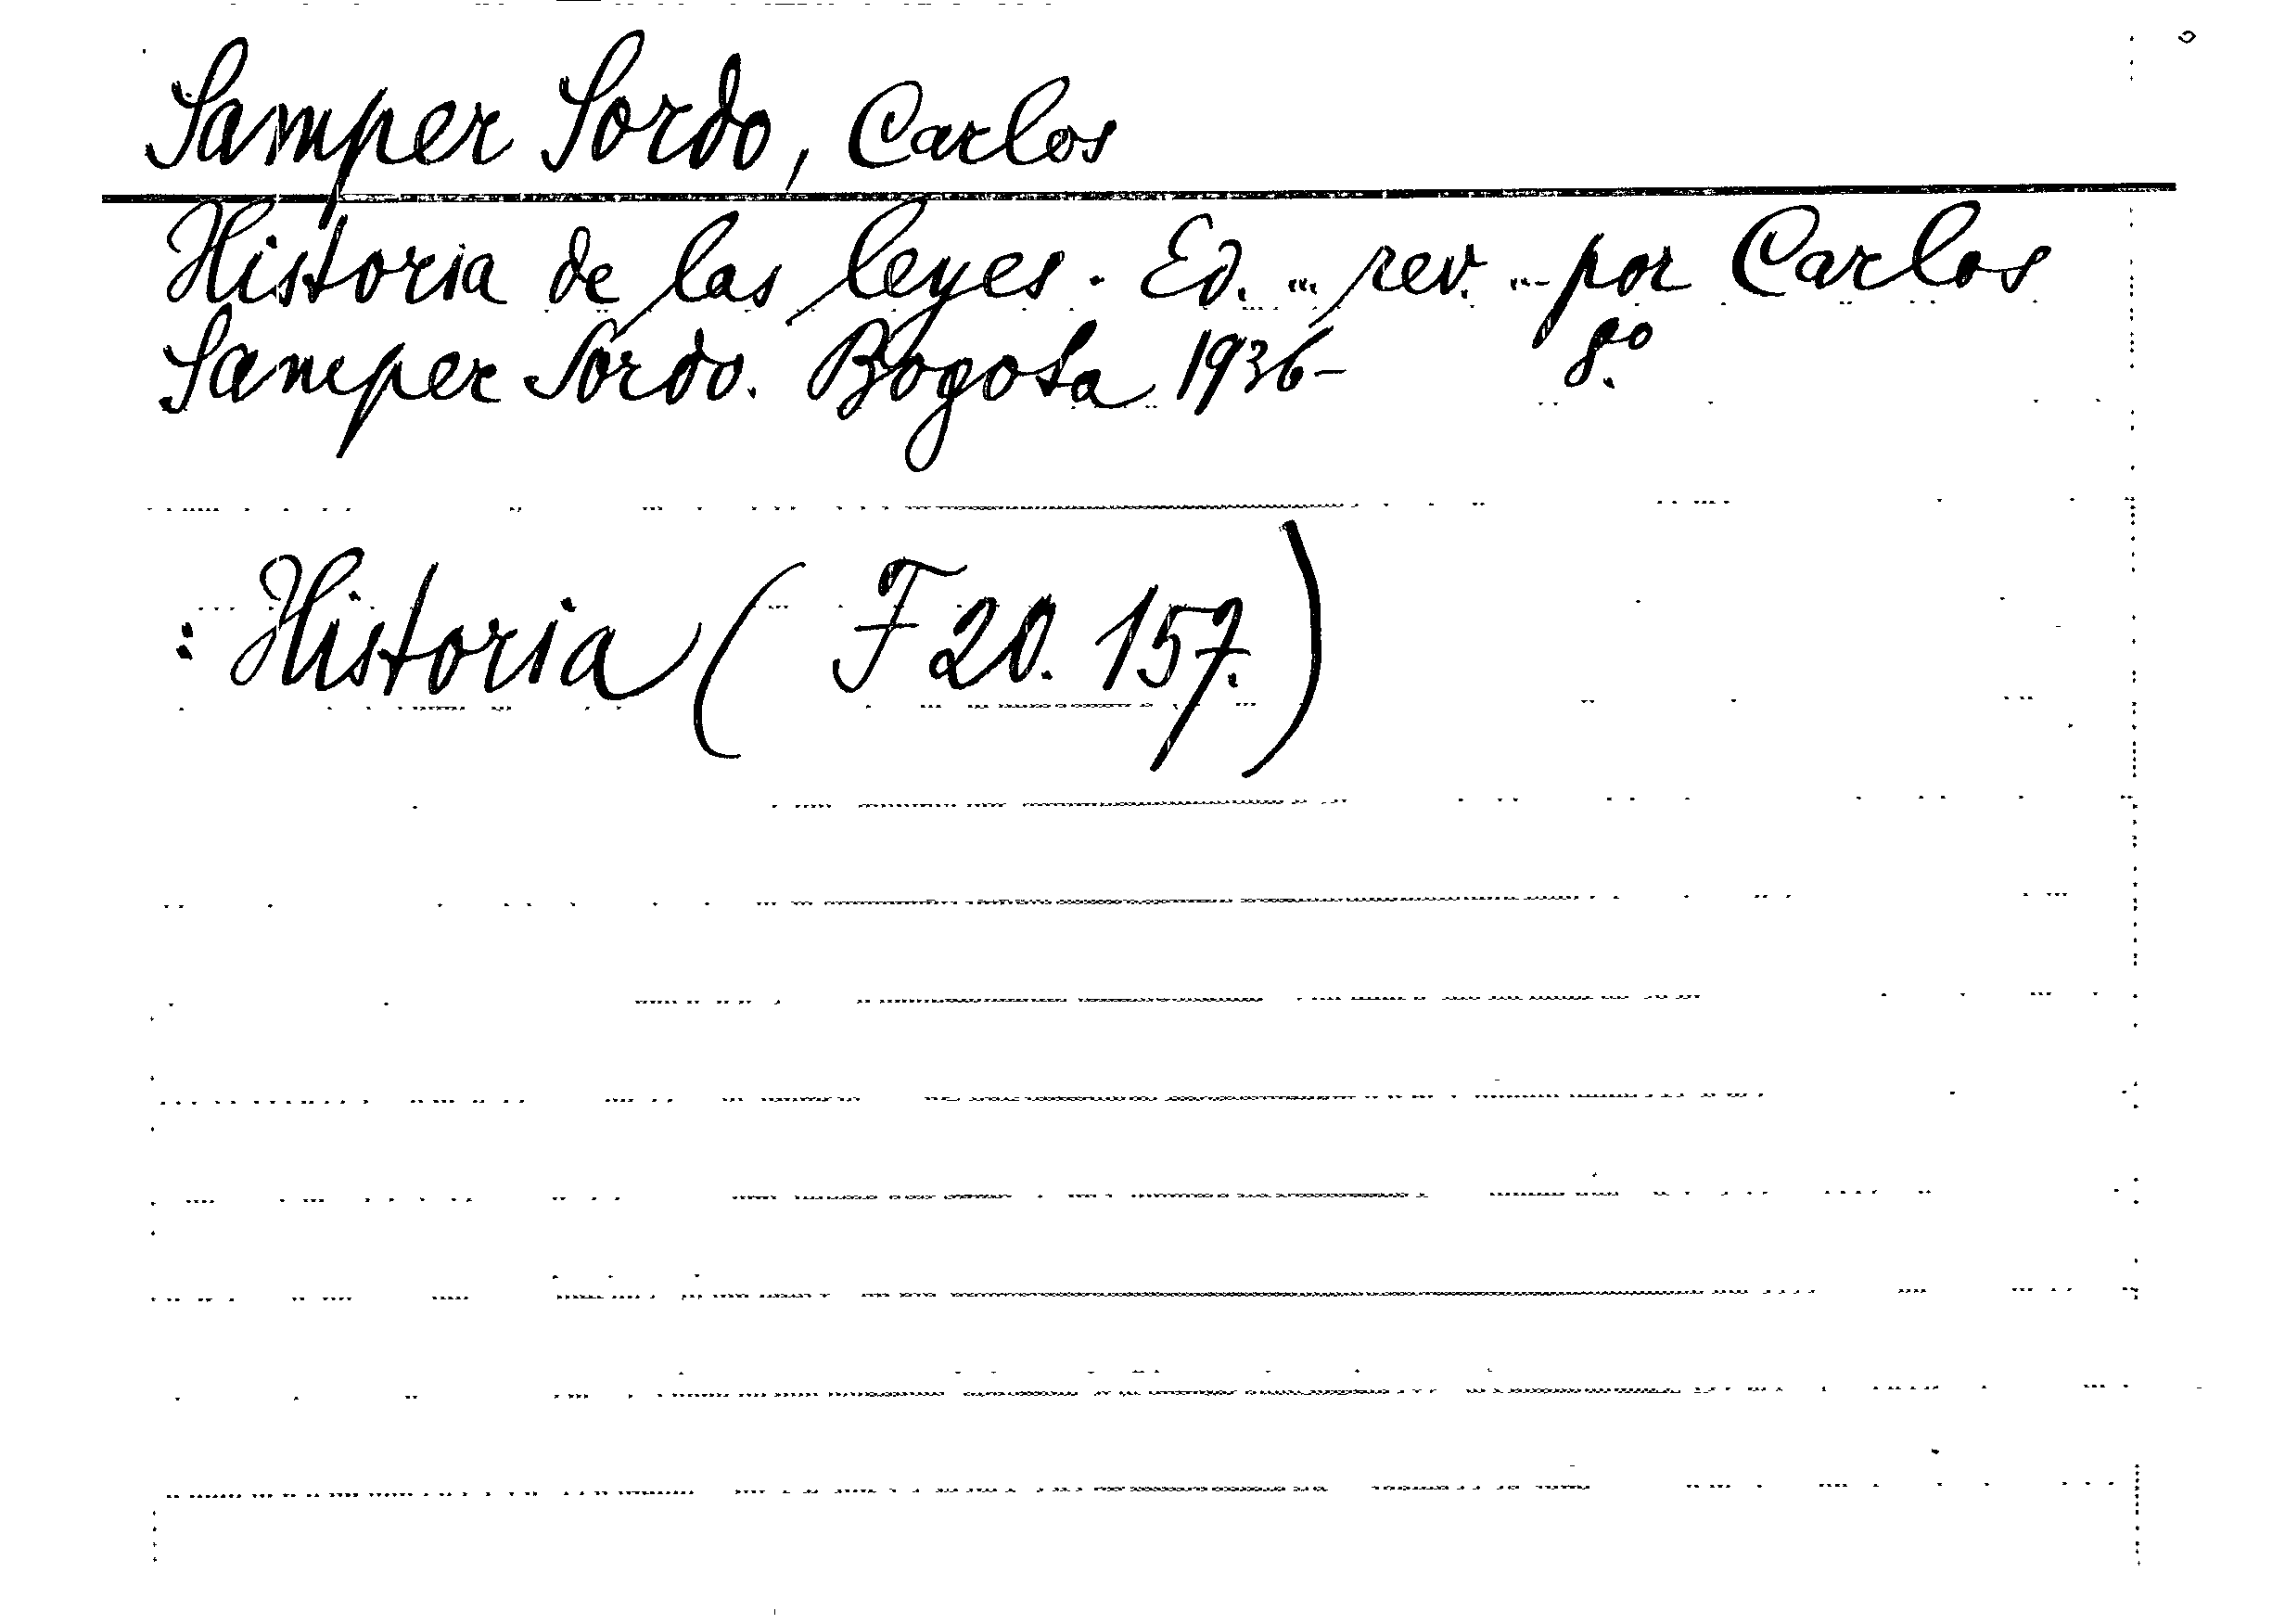 Samper Sordo, Carlos
Historia de las leyes. Ed. ... rev. ... por Carlos
Samper Sordo. Bogota 1936- 8:o
: Historia ( F 20. 157. )